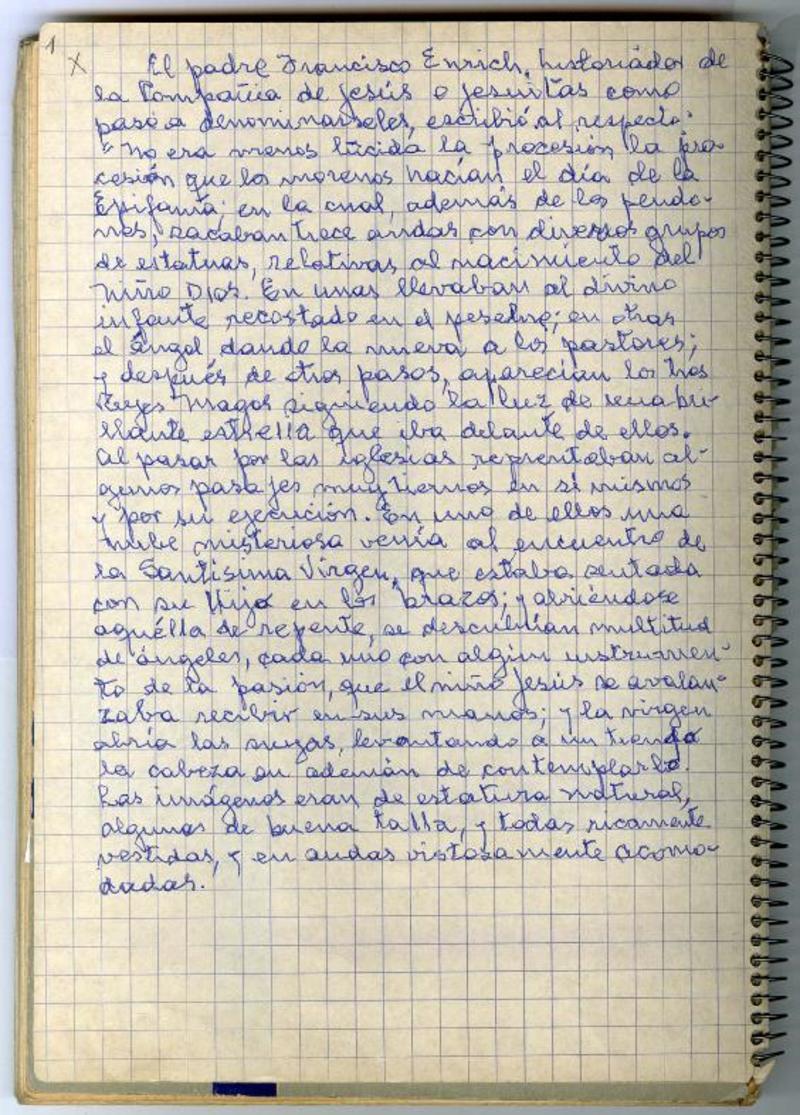 1
X
El padre Francisco Enrich, historiador de
la Compañía de Jesús o jesuitas como
pasó a denominarseles, escribió al respecto:
"No era menos lúcida la procesión la pro-
cesión que los morenos hacían el día de la
Epifanía; en la cual, además de los pendo-
nes, sacaban trece andas con diversos grupos
de estatuas, relativas al nacimiento del
Niño Dios. En unas llevaban al divino
infante recostado en el pesebre; en otras
el Ángel dando la nueva a los pastores;
y después de otros pasos, aparecían los tres
Reyes Magos siguiendo la luz de una bri-
llante estrella que iba delante de ellos.
Al pasar por las iglesias reprentaban al-
gunos pasajes muy tiernos en sí mismos
y por su ejecución. En uno de ellos una
nube misteriosa venía al encuentro de
la Santísima Virgen, que estaba sentada
con su Hijo en los brazos; y abriéndose
aquélla de repente, se descubrían multitud
de ángeles, cada uno con algún instrumen-
to de la pasión, que el niño Jesús se avalan-
zaba recibir en sus manos; y la virgen
abría las suyas, levantando a un tiempo
la cabeza en ademán de contemplarlo.
Las imágenes eran de estatura natural,
algunas de buena talla, y todas ricamente
vestidas, y en andas vistosamente acomo-
dadas.